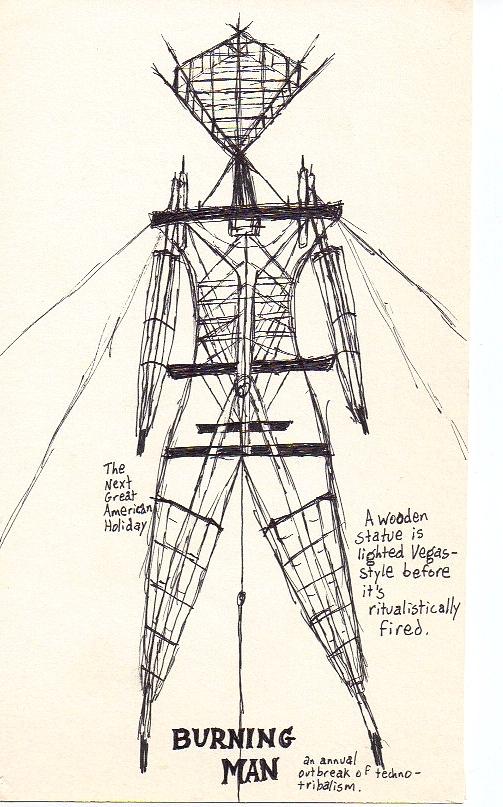 The
Next
Great
American
Holiday
A wooden
statue is
lighted Vegas-
style before
it's
ritualistically
fired.
BURNING
MAN
an annual
outbreak of techno-
tribalism.